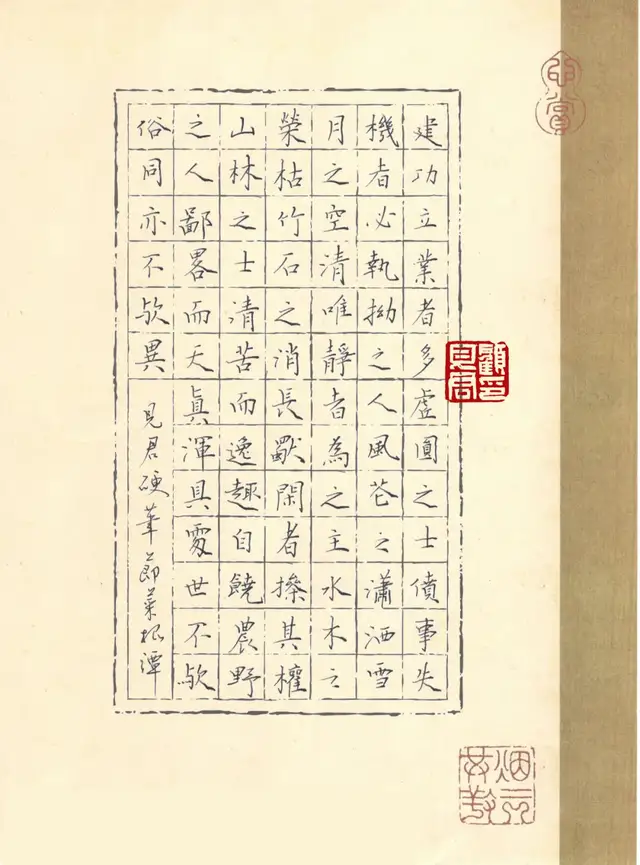 建功立業者多虛圓之士僨事失
機者必執拗之人風花之瀟洒雪
月之空清唯靜者為之主水木之
榮枯竹石之消長獨閑者操其權
山林之士清苦而逸趣自饒農野
之人鄙畧而天真渾具處世不欤
俗同亦不欤異
見君硬筆節菜根潭